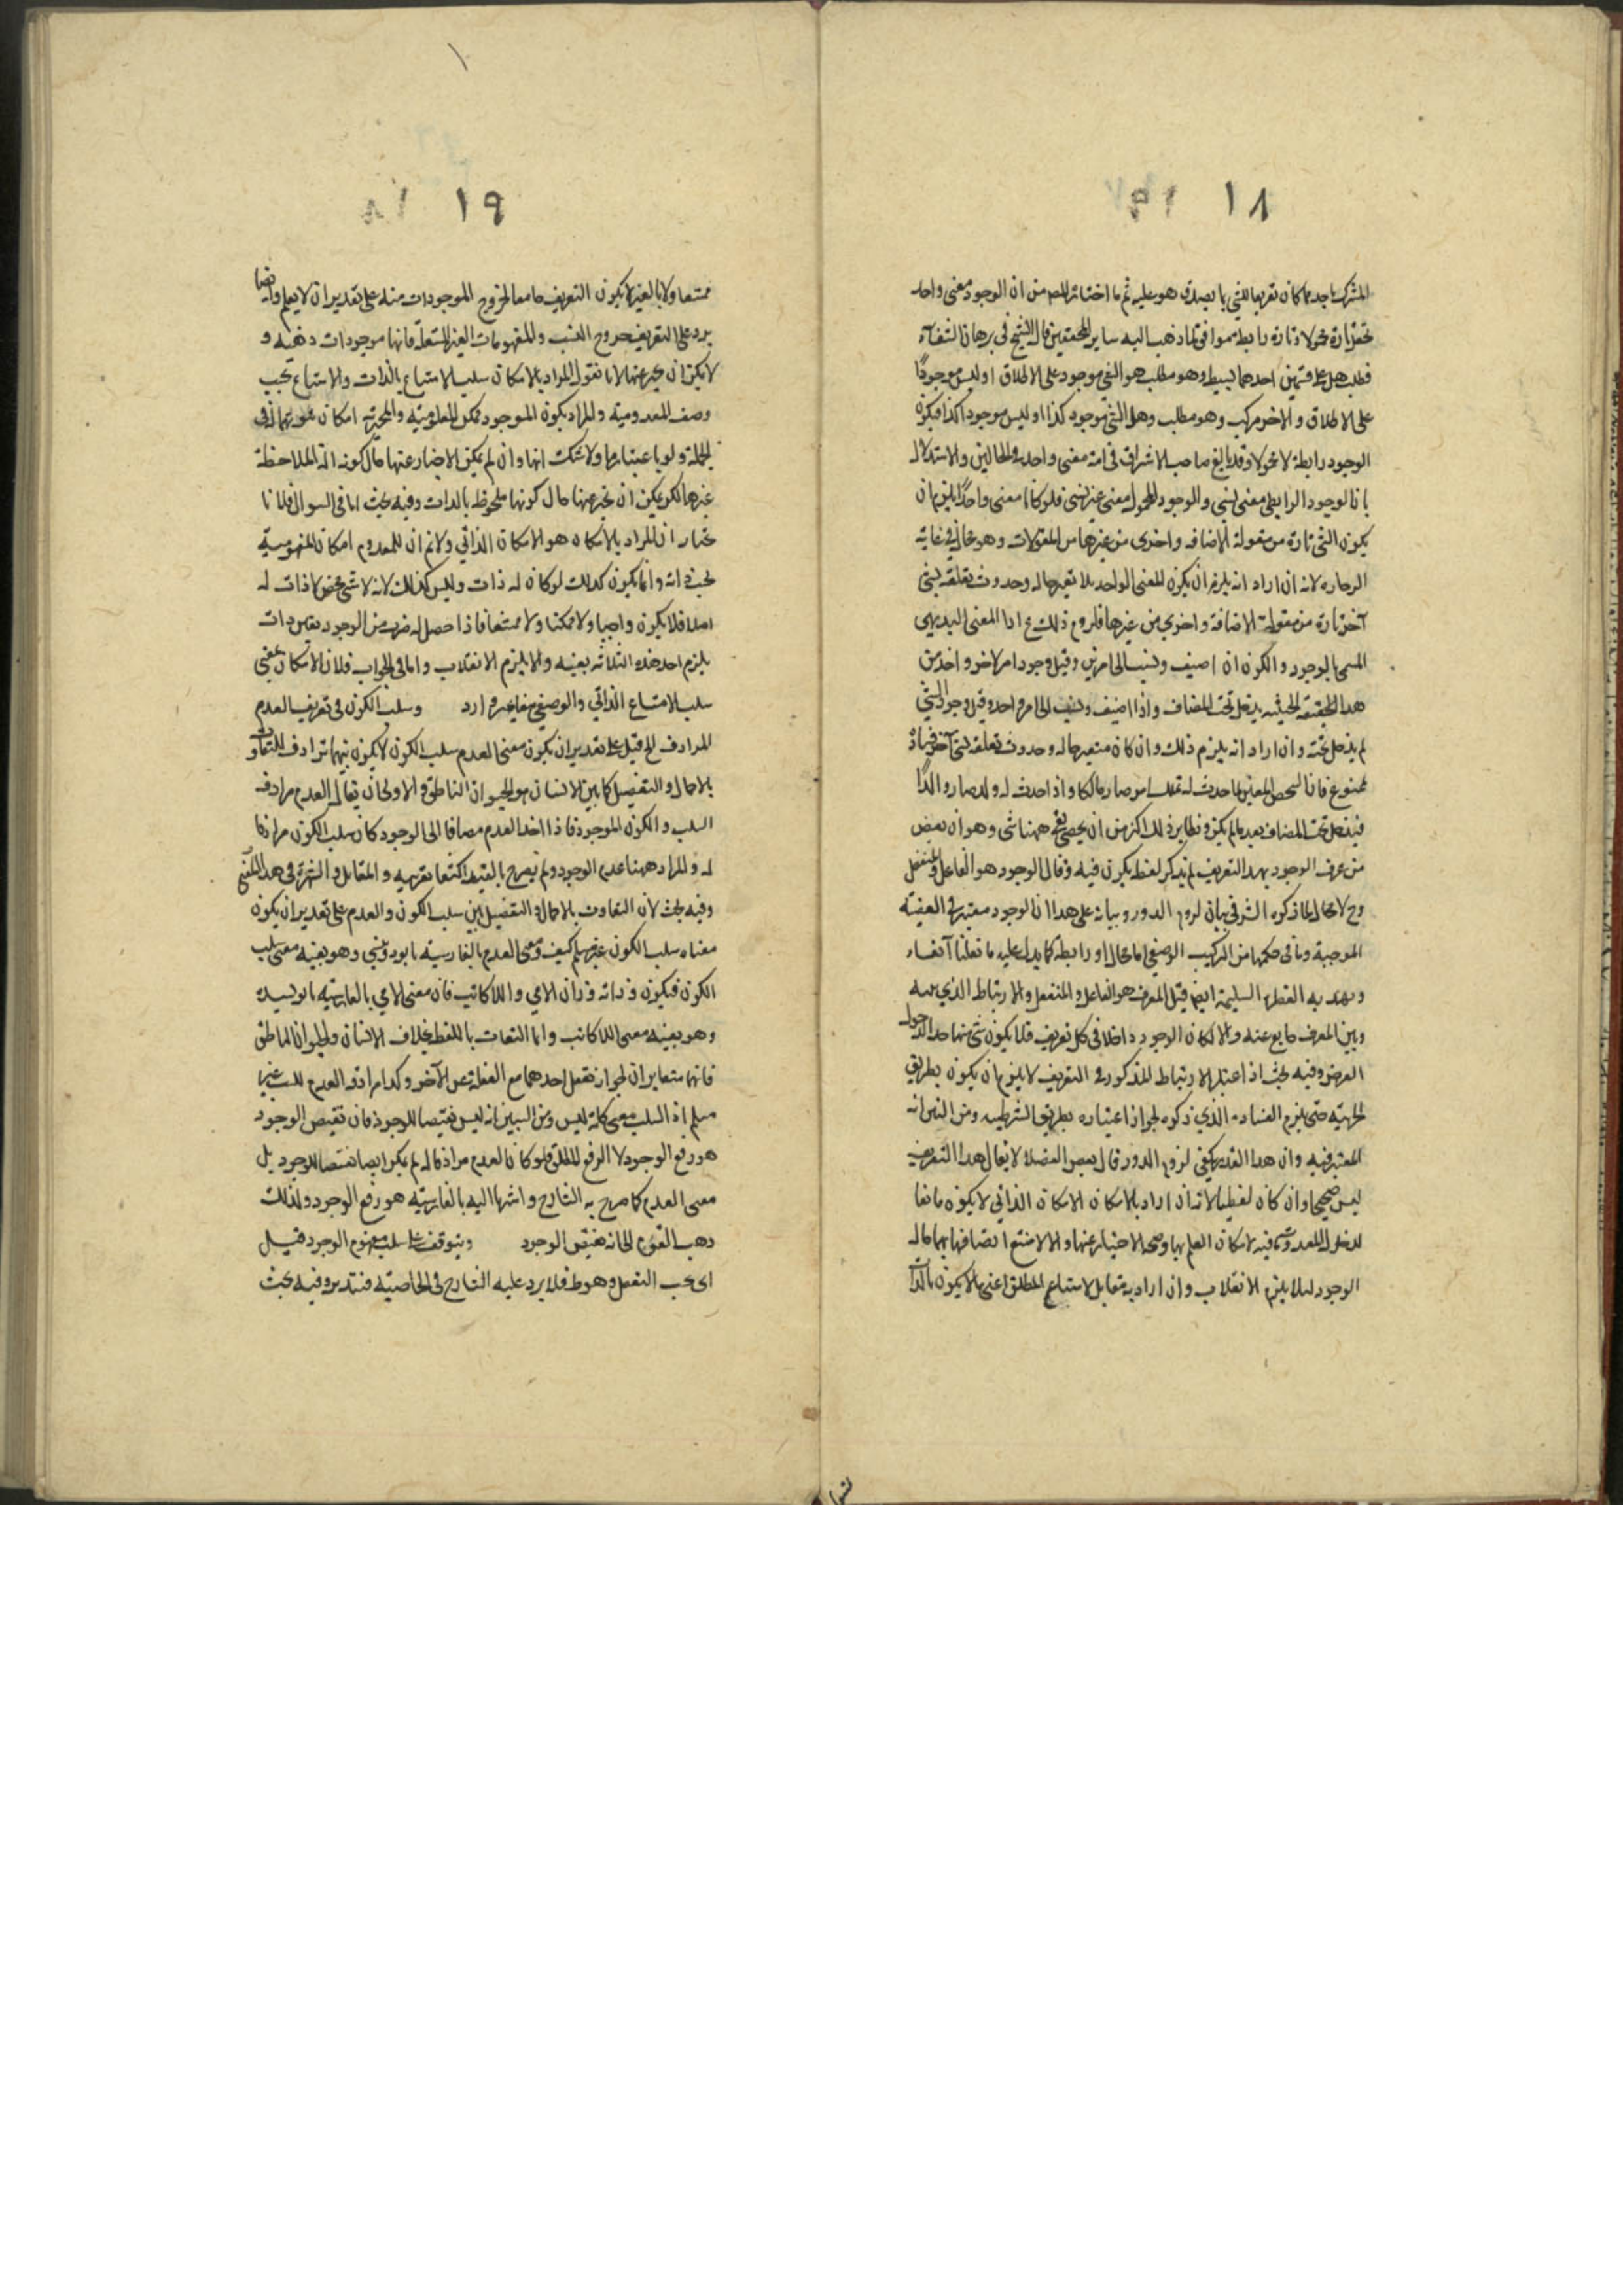 ١٨
المشترك باحدهما كان تعريفا للشي بما يصدق هو عليه ثم ما اختاره المصـ من ان الوجود معنى واحد
تحقق تارة محمولا وتارة رابطة موافق لما ذهب اليه ساير المحققين قال الشيخ في برهان الشفاء
فطلب هل على قسمين احدهما بسيط وهو مطلب هو الشي موجود على الاطلاق او ليس موجودًا
على الاطلاق والاخر مركب وهو مطلب وهل الشي موجود كذا او ليس موجودا كذا فيكون
الوجود رابطة لا محمولا وقد بالغ صاحب الاشراق في انه معنى واحد في الحالين والاستدلال
بان الوجود الرابطي معنى نسبي والوجود المحمول معنى غير نسبي فلو كانا معنى واحدًا يلزم ان
يكون الشي تارة من مقولة الاضافه واخرى من غيرها من المقولات وهو محال في غاية
لانه ان اراد انه يلزم ان يكون المعنى الواحد بلا تغير حاله وحدوث تعلقه بشي
آخر تارة من مقولة الاضافة واخرى من غيرها فلزوم ذلك مـ اذا المعنى البديهي
المسمى بالوجود والكون ان اضيف ونسب الى امرين وقيل وجود امر لاخر واخذ من
هذا الحقيقة الحيثيه يدخل تحت المضاف واذا اضيف ونسب الى امر واحد وقيل وجود الشي
لم يدخل تحته وان اراد انه يلزم ذلك وان كان متغير حاله وحدوث تعلقه بشي آخر
ممنوع فان الشخص المعين لما حدث له تملك امر صار مالكا واذا حدث له ولد صار والدًا
فيدخل تحت المضاف بعد ما لم يكن ونظاير ذلك اكثر من ان يحصى بقي ههنا شي وهو ان بعض
من عرف الوجود بهذا التعريف لم يذكر لفظ يكون فيه وقال الوجود هو الفاعل والمنفعل
وح لا مجال لما ذكره الشر في بيان لزوم الدور وبيانه على هذا ان الوجود معتبر في القضية
الموجبة وما في حكمها من التركيب الوصفي اما محمولا او رابطة كما يدل عليه ما نقلنا آنفاء
ويهدي به الفطرة السليمة ايضا قيل المعرف هو الفاعل والمنفعل والارتباط الذي بينه
وبين المعرف خارج عنه والا لكان الوجود داخلا في كل تعريف فلا يكون شي منها حدا الدخول
العرض وفيه بحث اذ اعتبار الارتباط المذكور في التعريف لا يلزم ان يكون بطريق
الجزئية حتى يلزم الفساد الذي ذكره لجواز اعتباره بطريق الشرطيه ومن البين انه
المعتبر فيه وان هذا القدر يكفي لزوم الدور قال بعض الفضلا لا يقال هذا التعريف
ليس صحيحا وان كان لفظيا لانه ان اراد بالامكان الامكان الذاتي لا يكون مانعا
لدخول المعدوم فيه لامكان العلم بها وصحة الاخبار عنها والا لامتنع اتصافها بهما حال
الوجود لئلا يلزم الانقلاب وان اراد به مقابل الامتناع المطلق اعني ما لا يكون بالذات
١٩
ممتنعا ولا بالغير لا يكون التعريف جامعا لخروج الموجودات منه على تقدير ان لا يعلم وايضا
يرد على التعريف خروج النسب والمفهومات الغير المستقلة فانها موجودات ذهنيه و
لا يمكن ان يخبر عنها لانا نقول المراد بالامكان سلب الامتناع بالذات والامتناع بحسب
وصف المعدومية والمراد بكون الموجود ممكن المعلومية والمخبرية امكان ثبوتهما له في
الجملة ولو باعتبار ما ولا شك انها وان لم يمكن الاخبار عنها حال كونه الة لملاحظة
غيرها لكن يمكن ان يخبر عنها حال كونها ملحوظه بالذات وفيه بحث اما في السوال فلانا
نختار ان المراد بالامكان هو الامكان الذاتي ولا نم ان للمعدوم امكان المفهومية
بحسب ذاته وانما يكون كذلك لو كان له ذات وليس كذلك لانه لا شي محض لا ذات له
اصلا فلا يكون واجبا ولا ممكنا ولا ممتنعا فاذا حصل له ضرب من الوجود يصير ذات
يلزم احد هذه الثلاثه بعينه والا يلزم الانقلاب واما في الجواب فلان الامكان بمعنى
سلب الامتناع الذاتي والوصفي وارد وسلب الكون في تعريف العدم
المرادف الخ قيل على تقدير ان يكون معنى العدم سلب الكون لا يكون بينهما ترادف للتفاوت
بالاجمال والتفصيل كما بين الانسان والحيوان الناطق والاولى ان يقال العدم مرادف
السلب والكون الموجود فاذا اخذ العدم مضافا الى الوجود كان سلب الكون مرادفا
له والمراد ههنا عدم الوجود ولم يصرح بالقيد اكتفا بقرينه المقابل والشهرة في هذا المعنى
وفيه بحث لان التفاوت بالاجمال والتفصيل بين سلب الكون والعدم على تقدير ان يكون
معناه سلب الكون غير مسلم كيف ومعنى العدم بالفارسية نابود ونيستي وهو بعينه معنى سلب
الكون فيكون وزانه وزان الامي واللاكاتب فان معنى الامي بالفارسية نانويسنده
وهو بعينه معنى اللاكاتب وانما التفاوت باللفظ بخلاف الانسان والحيوان الناطق
فانهما متغايران لجواز تعقل احدهما مع الغفلة عن الآخر وكذا مرادفه العدم للسلب غير
مسلم اذ السلب معنى كلمة ليس ومن البين انه ليس نقيضا للوجود فان نقيض الوجود
هو رفع الوجود لا الرفع المطلق فلو كان العدم مرادفا له لم يكن ايضا نقيضا للوجود بل
معنى العدم كما صرح به الشارح واشرنا اليه بالفارسية هو رفع الوجود ولذلك
ذهب القوم الى انه نقيض الوجود ويتوقف على سلب مفهوم الوجود قيل
اي بحسب التعقل وهو ظ فلا يرد عليه الشارح في الحاشية فتدبر وفيه بحث